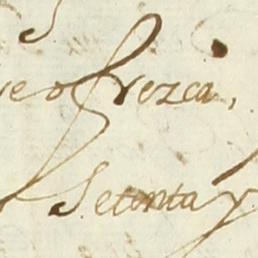 se ofrezca,
Setenta y